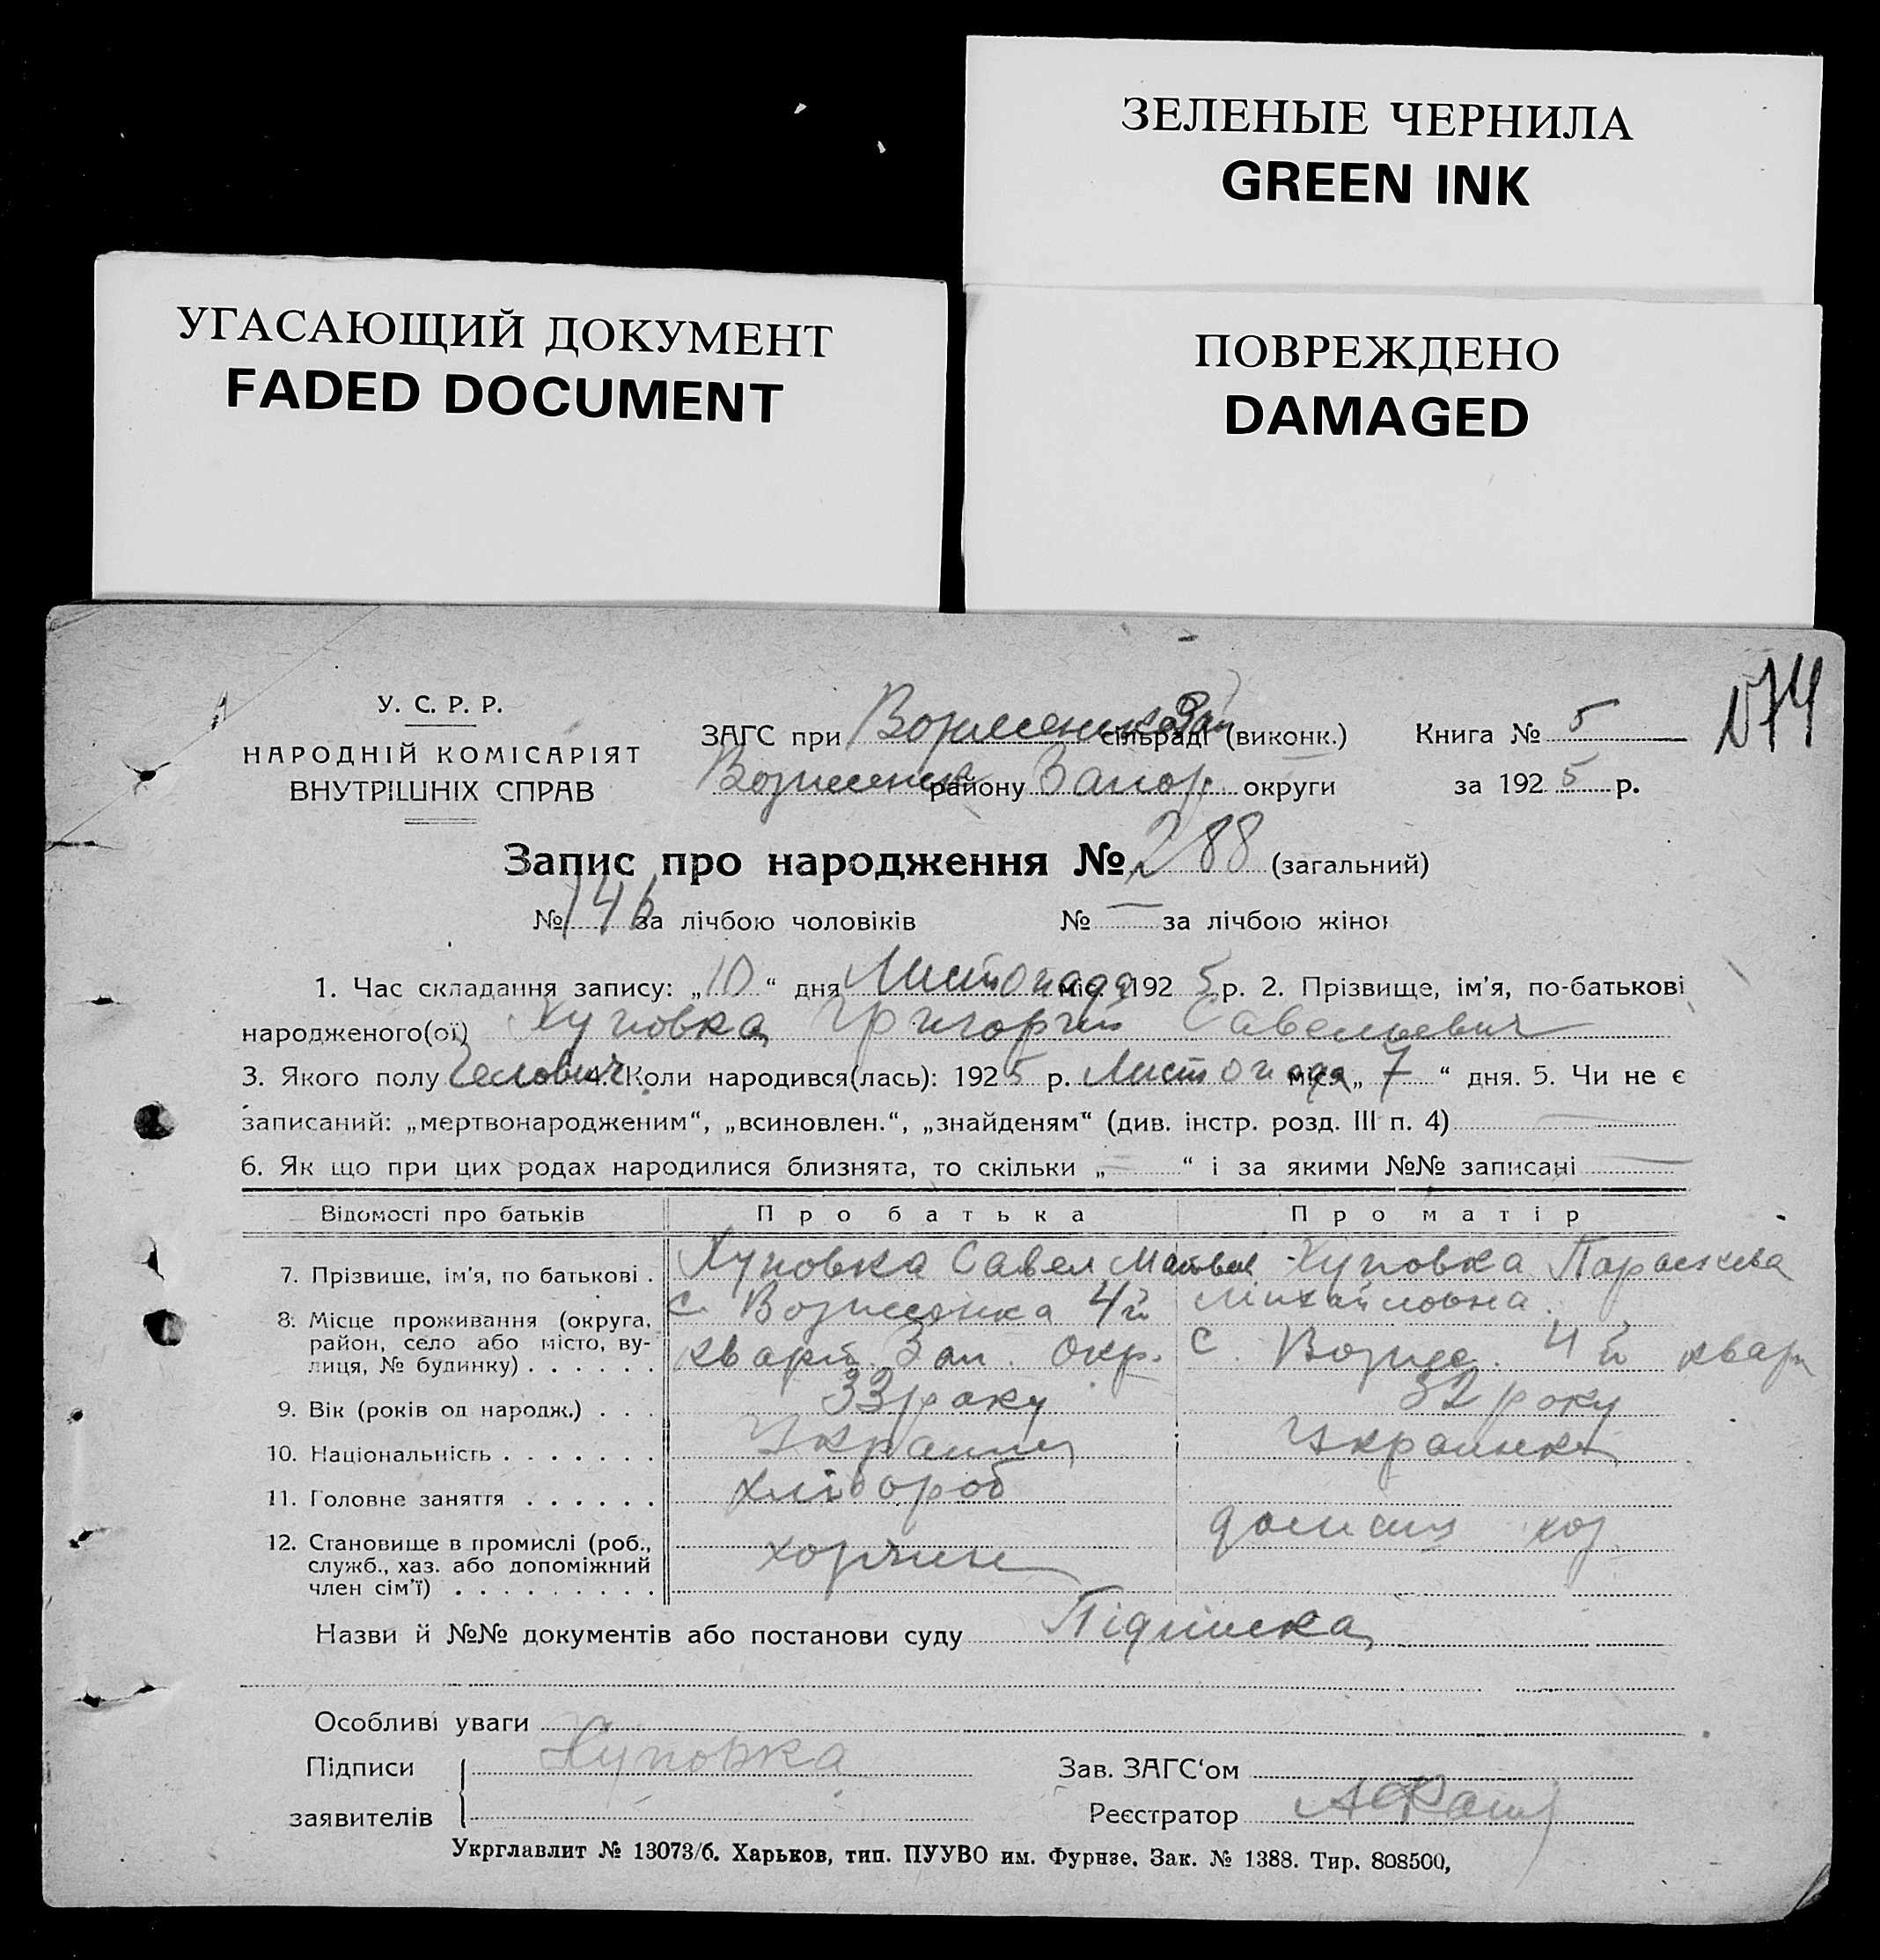 ЗЕЛЕНЫЕ ЧЕРНИЛА
GREEN INK
УГАСАЮЩИЙ ДОКУМЕНТ
FADED DOCUMENT
ПОВРЕЖДЕНО
DAMAGED
174
У. С. Р. Р.
НАРОДНІЙ КОМІСАРІЯТ
ВНУТРІШНІХ СПРАВ
ЗАГС при сільраді (виконк.)
району Запор округи
Книга № 5
за 192 5 р.
Запис про народження № 288 (загальний)
№ 146 за лічбою чоловіків № — за лічбою жінок
1. Час складання запису: „ 10 “ дня Листопада міс. 192 5 р. 2. Прізвище, ім'я, по-батькові
народженого(ої) Хуповка Григорий Савельевич
3. Якого полу 4. Коли народився(лась): 192 5 р. Листопада міся „ 7 “ дня. 5. Чи не є
записаний: „мертвонародженим“, „всиновлен.“, „знайденям“ (див. інстр. розд. III п. 4) —
6. Як що при цих родах народилися близнята, то скільки „ — “ і за якими №№ записані —
Відомості про батьків Про батька Про матір
7. Прізвище, ім'я, по батькові . Хуповка Савел Матвее. Хуповка Параскева
Михайловна.
8. Місце проживання (округа, район, село або місто, вулиця, № будинку) . . . . . .
с. Вознесенка 4й
кварт. Зап. Окр. с. Вознес. 4й кварт
9. Вік (років од народж.) . . . 33 року 32 року
10. Національність . . . . . . . Украинец Украинка
11. Головне заняття . . . . . . хлібороб
12. Становище в промислі (роб., служб., хаз. або допоміжний член сім'ї) . . . . . . . . .
Назви й №№ документів або постанови суду Підписка
Особливі уваги
Підписи заявителів Хуповка
Зав. ЗАГС'ом
Реєстратор
Укрглавлит № 13073/6. Харьков, тип. ПУУВО им. Фурнзе. Зак. № 1388. Тир. 808500,